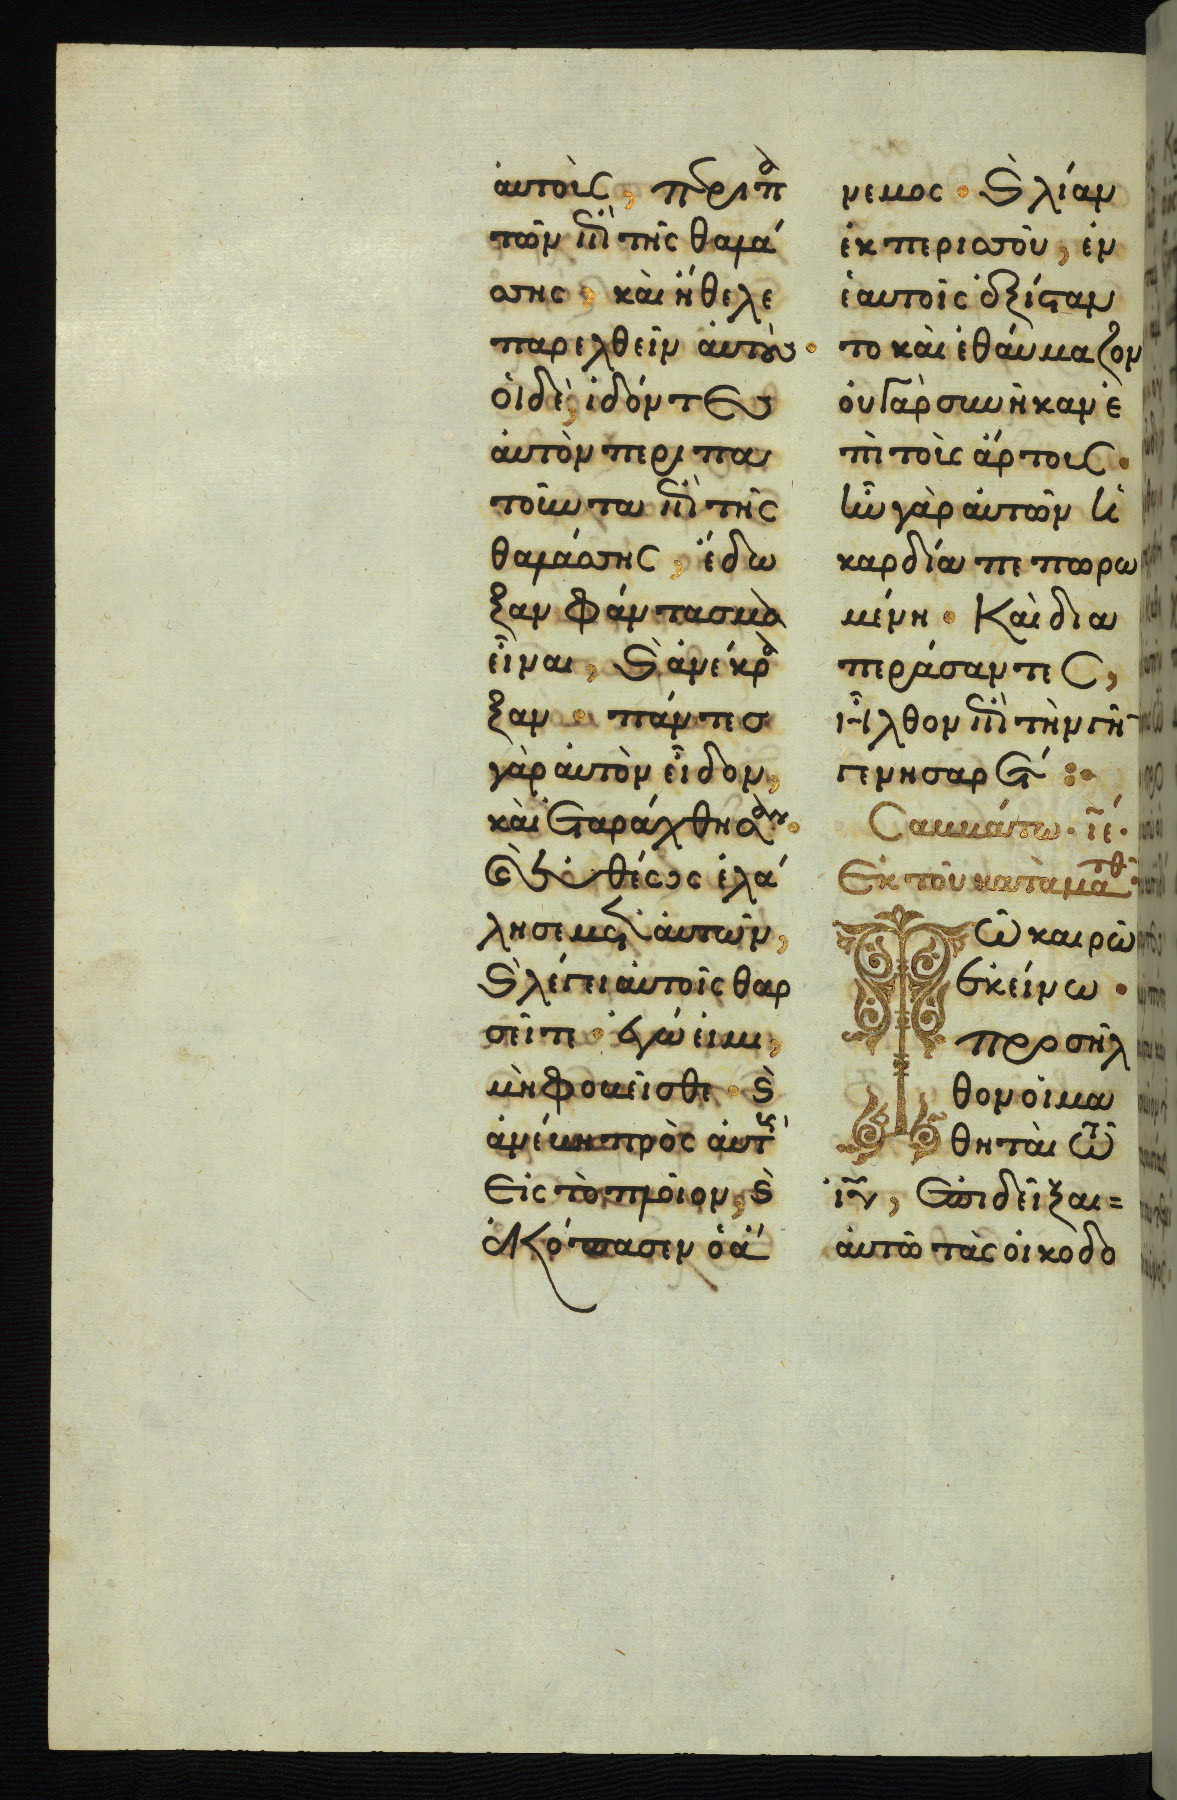 αὐτοῖς, περιπα
τῶν ἐπὶ τῆς θαλά
σσης, καὶ ἤθελε
παρελθεῖν αὐτούς.
οἱ δὲ, ἰδόντες
αὐτὸν περιπα
τοῦντα ἐπὶ τῆς
θαλάσσης, ἔδο
ξαν φάντασμα
εἶναι, καὶ ἀνέκρα
ξαν. πάντες
γὰρ αὐτὸν εἶδον,
καὶ ἐταράχθησαν.
καὶ εὐθέως ἐλά
λησε μετ' αὐτῶν,
καὶ λέγει αὐτοῖς θαρ
σεῖτε. ἐγώ εἰμι,
μὴ φοβεῖσθε. καὶ
ἀνέβη πρὸς αὐτοὺς
εἰς τὸ πλοῖον, καὶ
ἐκόπασεν ὁ ἄ
νεμος. καὶ λίαν
ἐκ περισσοῦ, ἐν
ἑαυτοῖς ἐξίσταν
το καὶ ἐθαύμαζον
οὐ γὰρ συνῆκαν ἐ
πὶ τοῖς ἄρτοις.
ἦν γὰρ αὐτῶν ἡ
καρδία πεπωρω
μένη. Καὶ δια
περάσαντες,
ἦλθον ἐπὶ τὴν γῆν
γενησαρέτ :·
Σαββάτω. ιε.
Ἐκ τοῦ κατὰ ματθ.
Τῶ καιρῶ
ἐκείνω.
προσῆλ
θον οἱ μα
θηταὶ τῶ
ἰῦ, ἐπιδεῖξαι
αὐτῶ τὰς οἰκοδο